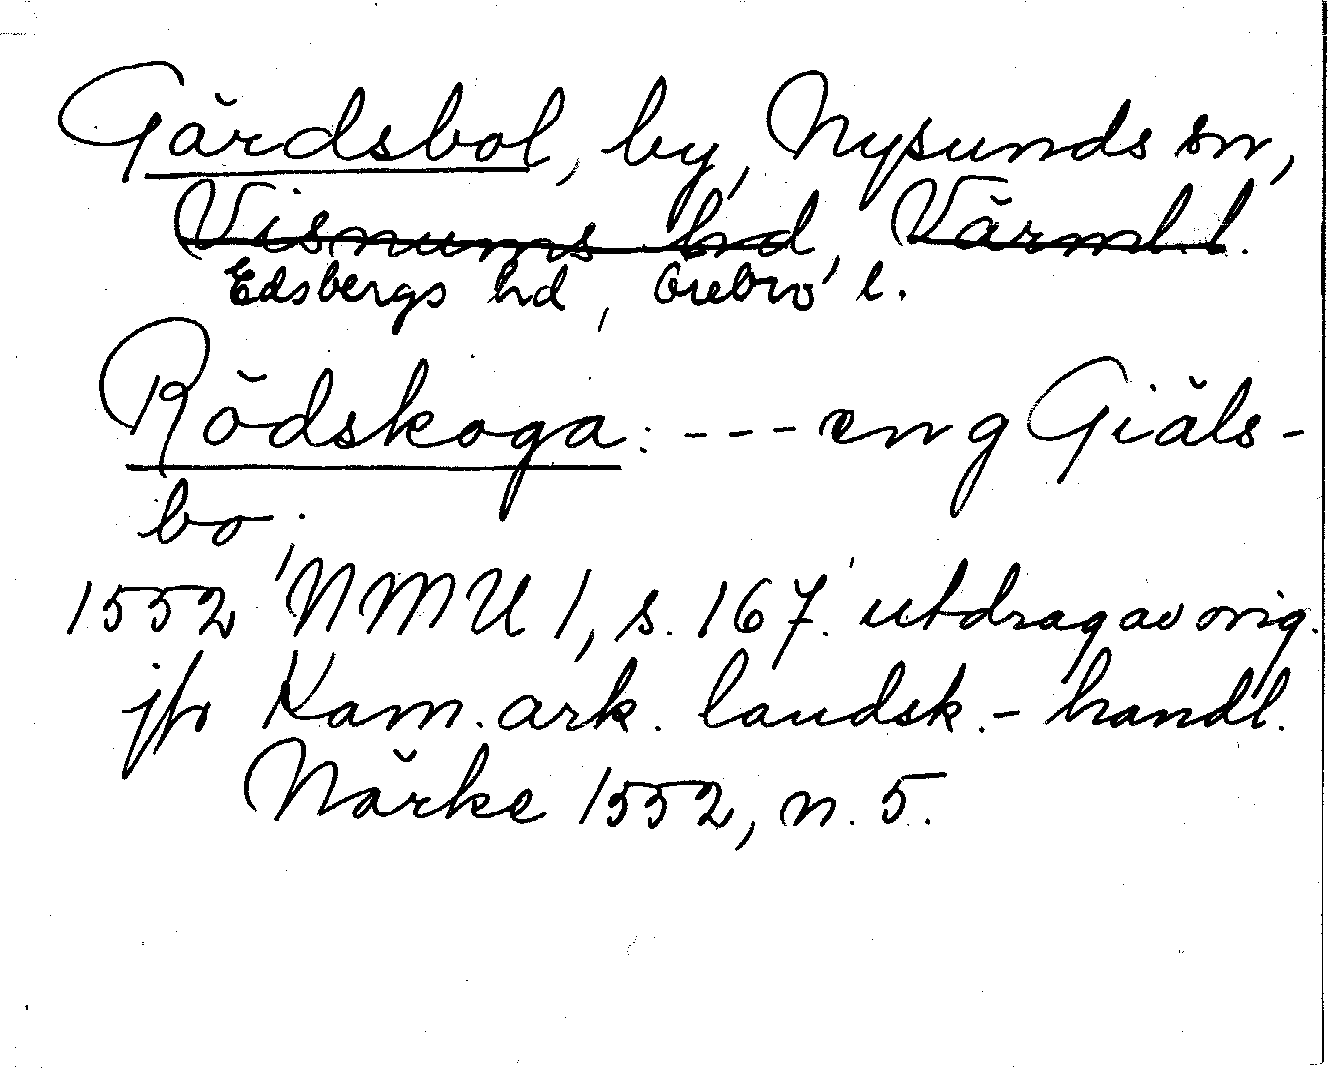 Gärdsbol, by, Nysunds sn,
Visnums hd, Värml. l.
Edsbergs hd, Örebro l.
Rödskoga: - - - eng Giäls-
bo.
1552 NMU 1, s. 167. utdrag av orig.
jfr Kam. ark. landsk.- handl.
Närke 1552, n. 5.